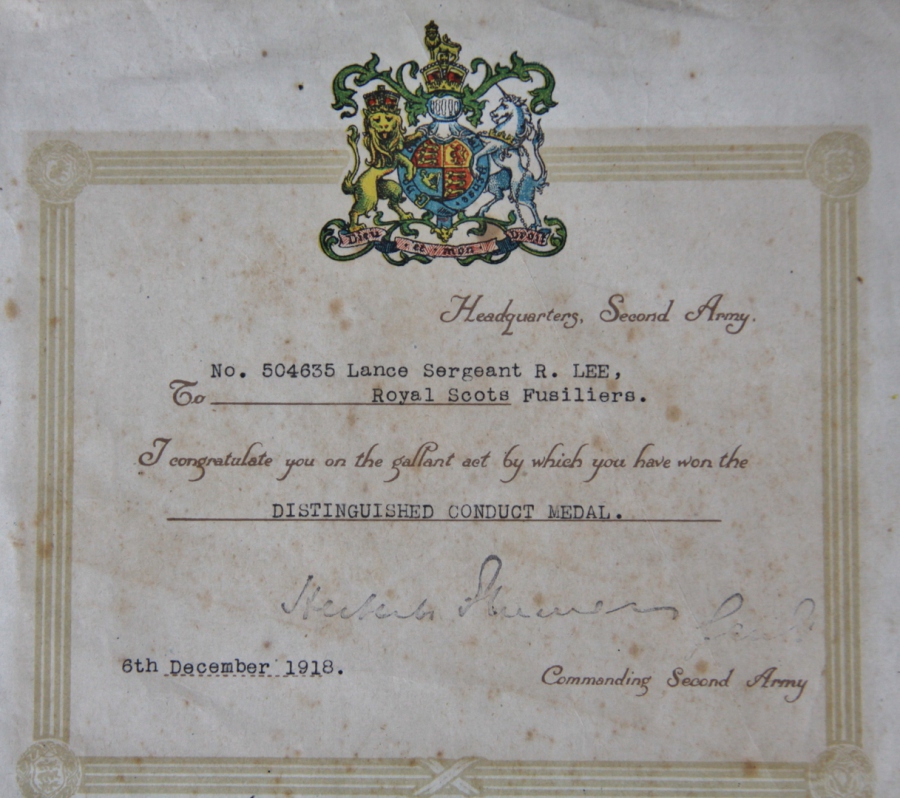 Dieu et mon Droit
Headquarters, Second Army.
No. 504635 Lance Sergeant R. LEE,
To Royal Scots Fusiliers.
I congratulate you on the gallant act by which you have won the
DISTINGUISHED CONDUCT MEDAL.
Herbert Plumer
6th December 1918.
Commanding Second Army